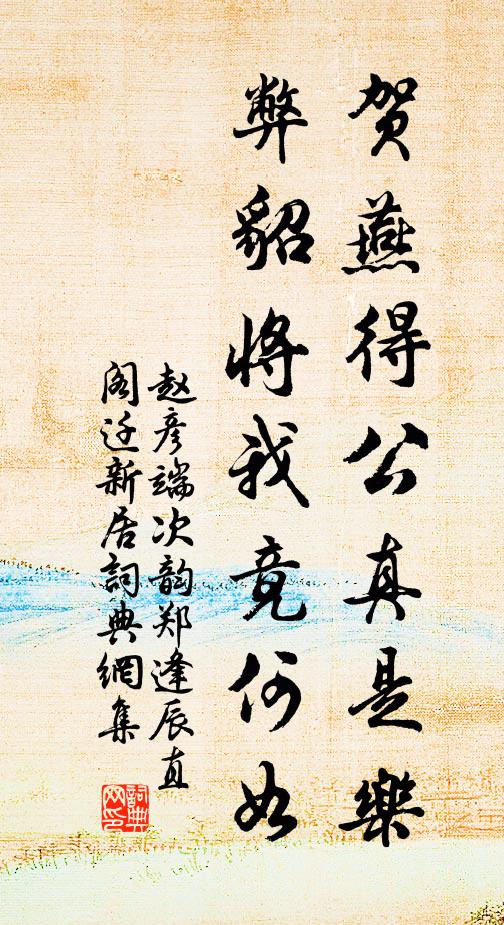 贺燕得公真是樂
弊貂將我竟何如
赵彦端次韵郑逢辰直
阁迁新居詞典網集
詞典網印